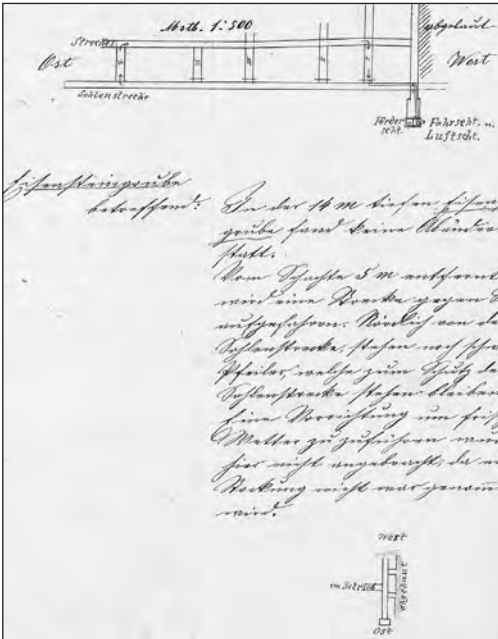 Mstb. 1:500
abgebaut
Strecke
Ost
West
Sohlenstrecke
Förder
scht.
Fahrscht. u.
Luftscht.
Eisensteingrube
betreffend:
In der 14 m tiefen Eisen
grube fand keine Abänder
statt.
Vom Schachte 5 m entfernt
wird eine Strecke gegen
aufgefahren. Nördlich von de
Sohlenstrecke, stehen noch
Pfeiler, welche zum Schutz de
Sohlenstrecke stehen bleiben
Eine Vorrichtung um fris
Wetter zu zuführen wu
hier nicht angebracht, da
Stockung nicht war genom
wird.
West
im Betrieb
abgebaut
Ost